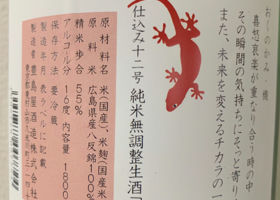 喜怒哀楽が重なり合う時の中
その瞬間の気持ちにそっと寄り
また、未来を変えるチカラの一
仕込み十二号 純米無調整生酒
原材料名 米(国産)、米麹(国産米
原料米 広島県産八反錦100%
精米歩合 55%
アルコール分 16度 内容量 1800
保存方法 要冷蔵
製造年月 表ラベルに記載
製造者 豊島屋酒造株式会社